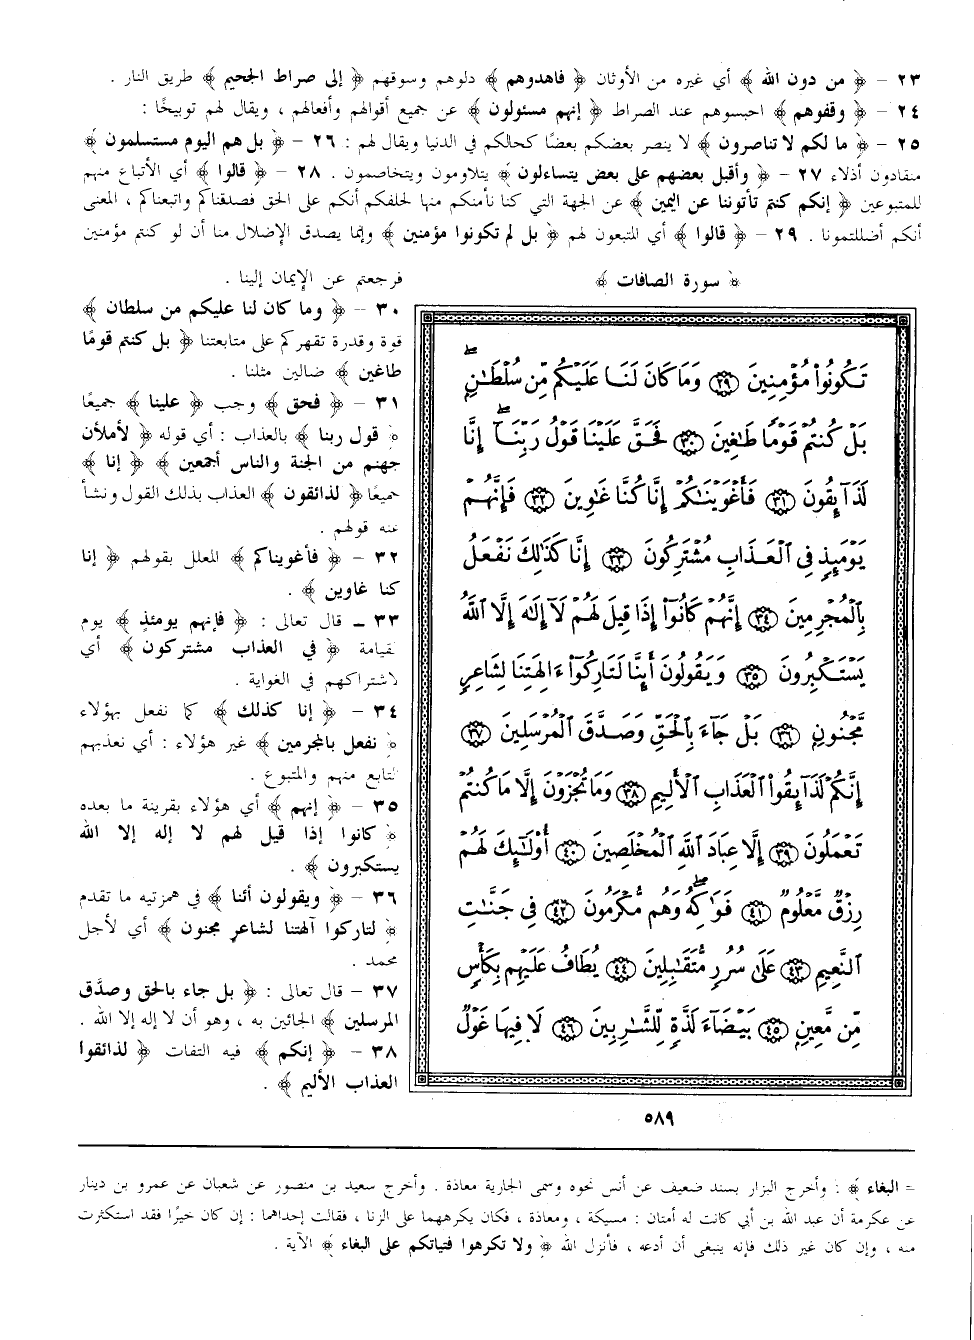 ٢٣ – ﴿ من دون الله ﴾ أي غيره من الأوثان ﴿ فاهدوهم ﴾ دلوهم وسوقهم ﴿ إلى صراط الجحيم ﴾ طريق النار .
٢٤ – ﴿ وقفوهم ﴾ احبسوهم عند الصراط ﴿ إنهم مسئولون ﴾ عن جميع أقوالهم وأفعالهم ، ويقال لهم توبيخًا :
٢٥ – ﴿ ما لكم لا تناصرون ﴾ لا ينصر بعضكم بعضًا كحالكم في الدنيا ويقال لهم : ٢٦ – ﴿ بل هم اليوم مستسلمون ﴾
منقادون أذلاء ٢٧ – ﴿ وأقبل بعضهم على بعض يتساءلون ﴾ يتلاومون ويتخاصمون . ٢٨ – ﴿ قالوا ﴾ أي الأتباع منهم
للمتبوعين ﴿ إنكم كنتم تأتوننا عن اليمين ﴾ عن الجهة التي كنا نأمنكم منها لحلفكم أنكم على الحق فصدقناكم واتبعناكم ، المعنى
أنكم أضللتمونا . ٢٩ – ﴿ قالوا ﴾ أي المتبعون لهم ﴿ بل لم تكونوا مؤمنين ﴾ وإنما يصدق الإضلال منا أن لو كنتم مؤمنين
فرجعتم عن الإيمان إلينا .
٣٠ – ﴿ وما كان لنا عليكم من سلطان ﴾
قوة وقدرة تقهركم على متابعتنا ﴿ بل كنتم قومًا
طاغين ﴾ ضالين مثلنا .
٣١ – ﴿ فحق ﴾ وجب ﴿ علينا ﴾ جميعًا
﴿ قول ربنا ﴾ بالعذاب : أي قوله ﴿ لأملأن
جهنم من الجنة والناس أجمعين ﴾ ﴿ إنا ﴾
جميعًا ﴿ لذائقون ﴾ العذاب بذلك القول ونشأ
عنه قولهم .
٣٢ – ﴿ فأغويناكم ﴾ المعلل بقولهم ﴿ إنا
كنا غاوين ﴾ .
٣٣ – قال تعالى : ﴿ فإنهم يومئذٍ ﴾ يوم
القيامة ﴿ في العذاب مشتركون ﴾ أي
لاشتراكهم في الغواية .
٣٤ – ﴿ إنا كذلك ﴾ كما نفعل بهؤلاء
﴿ نفعل بالمجرمين ﴾ غير هؤلاء : أي نعذبهم
التابع منهم والمتبوع .
٣٥ – ﴿ إنهم ﴾ أي هؤلاء بقرينة ما بعده
﴿ كانوا إذا قيل لهم لا إله إلا الله
يستكبرون ﴾ .
٣٦ – ﴿ ويقولون أئنا ﴾ في همزتيه ما تقدم
﴿ لتاركوا آلهتنا لشاعرٍ مجنون ﴾ أي لأجل
محمد .
٣٧ – قال تعالى : ﴿ بل جاء بالحق وصدَّق
المرسلين ﴾ الجائين به ، وهو أن لا إله إلا الله .
٣٨ – ﴿ إنكم ﴾ فيه التفات ﴿ لذائقوا
العذاب الأليم ﴾ .
﴿ سورة الصافات ﴾
تَكُونُوا۟ مُؤْمِنِينَ ﴿٢٩﴾ وَمَا كَانَ لَنَا عَلَيْكُم مِّن سُلْطَٰنٍۭ ۖ
بَلْ كُنتُمْ قَوْمًا طَٰغِينَ ﴿٣٠﴾ فَحَقَّ عَلَيْنَا قَوْلُ رَبِّنَآ ۖ إِنَّا
لَذَآئِقُونَ ﴿٣١﴾ فَأَغْوَيْنَٰكُمْ إِنَّا كُنَّا غَٰوِينَ ﴿٣٢﴾ فَإِنَّهُمْ
يَوْمَئِذٍ فِى ٱلْعَذَابِ مُشْتَرِكُونَ ﴿٣٣﴾ إِنَّا كَذَٰلِكَ نَفْعَلُ
بِٱلْمُجْرِمِينَ ﴿٣٤﴾ إِنَّهُمْ كَانُوٓا۟ إِذَا قِيلَ لَهُمْ لَآ إِلَٰهَ إِلَّا ٱللَّهُ
يَسْتَكْبِرُونَ ﴿٣٥﴾ وَيَقُولُونَ أَئِنَّا لَتَارِكُوٓا۟ ءَالِهَتِنَا لِشَاعِرٍ
مَّجْنُونٍۭ ﴿٣٦﴾ بَلْ جَآءَ بِٱلْحَقِّ وَصَدَّقَ ٱلْمُرْسَلِينَ ﴿٣٧﴾
إِنَّكُمْ لَذَآئِقُوا۟ ٱلْعَذَابِ ٱلْأَلِيمِ ﴿٣٨﴾ وَمَا تُجْزَوْنَ إِلَّا مَا كُنتُمْ
تَعْمَلُونَ ﴿٣٩﴾ إِلَّا عِبَادَ ٱللَّهِ ٱلْمُخْلَصِينَ ﴿٤٠﴾ أُو۟لَٰٓئِكَ لَهُمْ
رِزْقٌ مَّعْلُومٌ ﴿٤١﴾ فَوَٰكِهُ ۖ وَهُم مُّكْرَمُونَ ﴿٤٢﴾ فِى جَنَّٰتِ
ٱلنَّعِيمِ ﴿٤٣﴾ عَلَىٰ سُرُرٍ مُّتَقَٰبِلِينَ ﴿٤٤﴾ يُطَافُ عَلَيْهِم بِكَأْسٍ
مِّن مَّعِينٍۭ ﴿٤٥﴾ بَيْضَآءَ لَذَّةٍ لِّلشَّٰرِبِينَ ﴿٤٦﴾ لَا فِيهَا غَوْلٌ
٥٨٩
= البغاء ﴾ : وأخرج البزار بسند ضعيف عن أنس نحوه وسمى الجارية معاذة . وأخرج سعيد بن منصور عن شعبان عن عمرو بن دينار
عن عكرمة أن عبد الله بن أبي كانت له أمتان : مسيكة ، ومعاذة ، فكان يكرههما على الزنا ، فقالت إحداهما : إن كان خيرًا فقد استكثرت
منه ، وإن كان غير ذلك فإنه ينبغي أن أدعه ، فأنزل الله ﴿ ولا تكرهوا فتياتكم على البغاء ﴾ الآية .